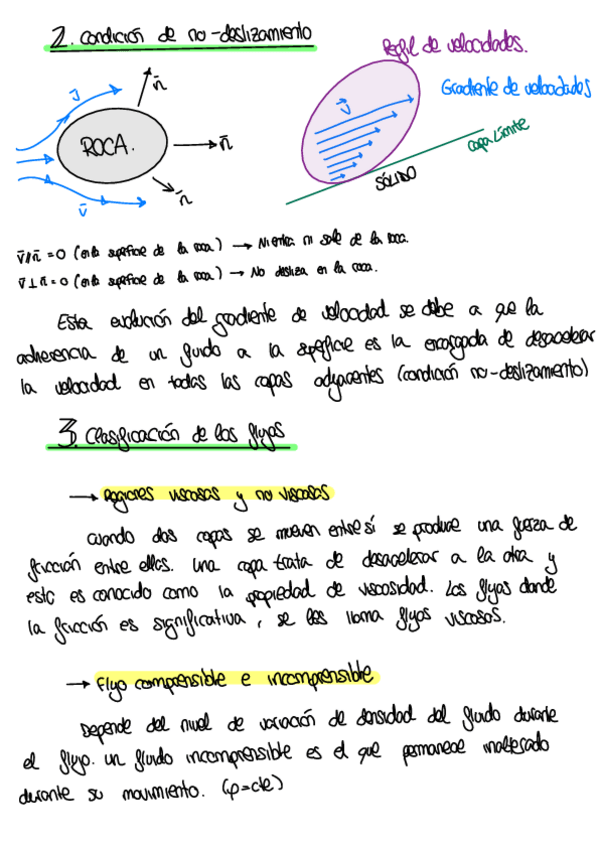 2. condición de no-deslizamiento
Perfil de velocidades.
Gradiente de velocidades
v̄
n̄
ROCA.
n̄
n̄
v̄
v⃗
capa límite
SÓLIDO
v̄∥n̄ = 0 (en la superficie de la roca) → Ni entra ni sale de la roca.
v̄⊥n̄ = 0 (en la superficie de la roca) → No desliza en la roca.
Esta evolución del gradiente de velocidad se debe a que la
adherencia de un fluido a la superficie es la encargada de desacelerar
la velocidad en todas las capas adyacentes (condición no-deslizamiento)
3. Clasificación de los flujos
→ Regiones viscosas y no viscosas
cuando dos capas se mueven entre sí se produce una fuerza de
fricción entre ellas. Una capa trata de desacelerar a la otra y
esto es conocido como la propiedad de viscosidad. Los flujos donde
la fricción es significativa, se les llama flujos viscosos.
→ Flujo comprensible e incomprensible
Depende del nivel de variación de densidad del fluido durante
el flujo. un fluido incomprensible es el que permanece inalterado
durante su movimiento. (ρ=cte)